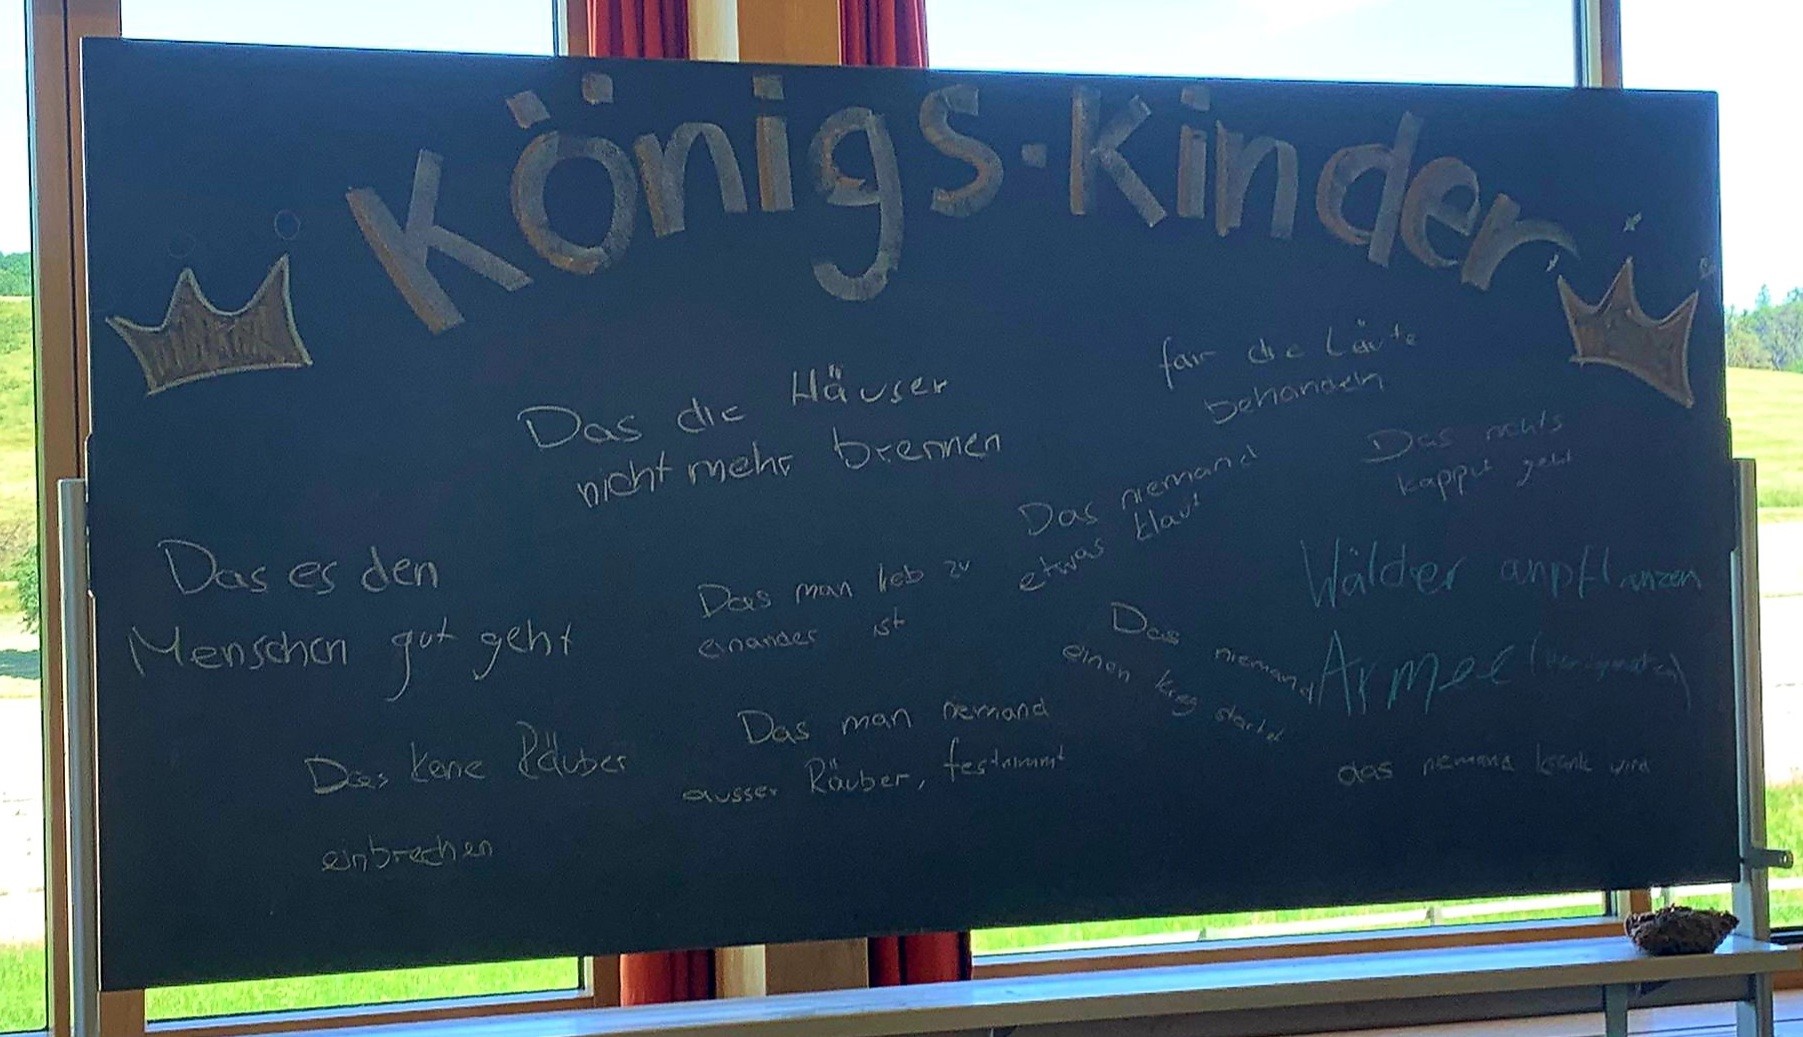 Königs-Kinder
fair die Läute
behandeln
Das die Häuser
nicht mehr brennen
Das nichts
kapput geht
Das niemand
etwas klaut
Das es den
Menschen gut geht
Das man lieb zu
einander ist
Wälder anpflanzen
Das niemand
einen krieg startet
Armee
Das keine Räuber
einbrechen
Das man niemand
ausser Räuber, festnimmt
das niemand krank wird